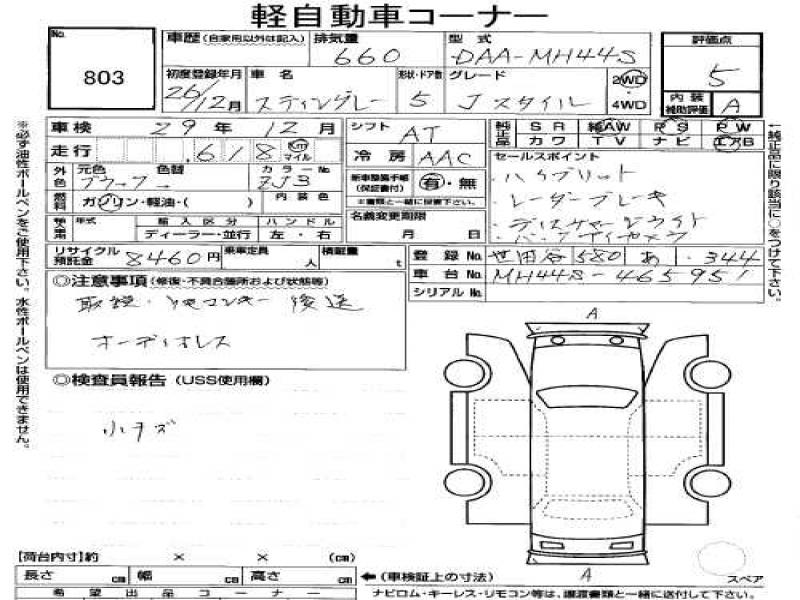 軽自動車コーナー
No. 803
車歴 (自家用以外は記入) 排気量 660 型式 DAA-MH44S 評価点 5
初度登録年月 26/12月 車名 スティングレー 形状・ドア数 5 グレード Jスタイル 2WD ・ 4WD 内装補助評価 A
車検 29年 12月 シフト AT 純正品 SR 純AW PS PW
カワ TV ナビ エアB
走行 618 km マイル 冷房 AAC セールスポイント
外色 元色 色替 カラーNo. ZJ3 新車整備手帳(保証書付) 有・無 ・ハイブリット
燃料 ガソリン・軽油・( ) 内装色 ※書類と一緒に保管下さい。 ・レーダーブレーキ
輸入車 年式 輸入区分 ハンドル 名義変更期限 ・ディスチャージライト
ディーラー・並行 左・右 月 日
リサイクル預託金 8460円 乗車定員 人 積載量 t 登録No. 世田谷 580 あ ・344
車台No. MH44S-465951
シリアルNo.
◎注意事項 (修復・不具合箇所および状態等)
取説・リモコンキー 後送
オーディオレス
◎検査員報告 (USS使用欄)
小キズ
A
A
スペア
【荷台内寸】約 × × (cm)
長さ cm 幅 cm 高さ cm ←(車検証上の寸法)
希望出品コーナー ナビロム・キーレス・リモコン等は、譲渡書類と一緒に送付して下さい。
※必ず油性ボールペンをご使用下さい。水性ボールペンは使用できません。
←純正品に限り該当に○をつけて下さい。